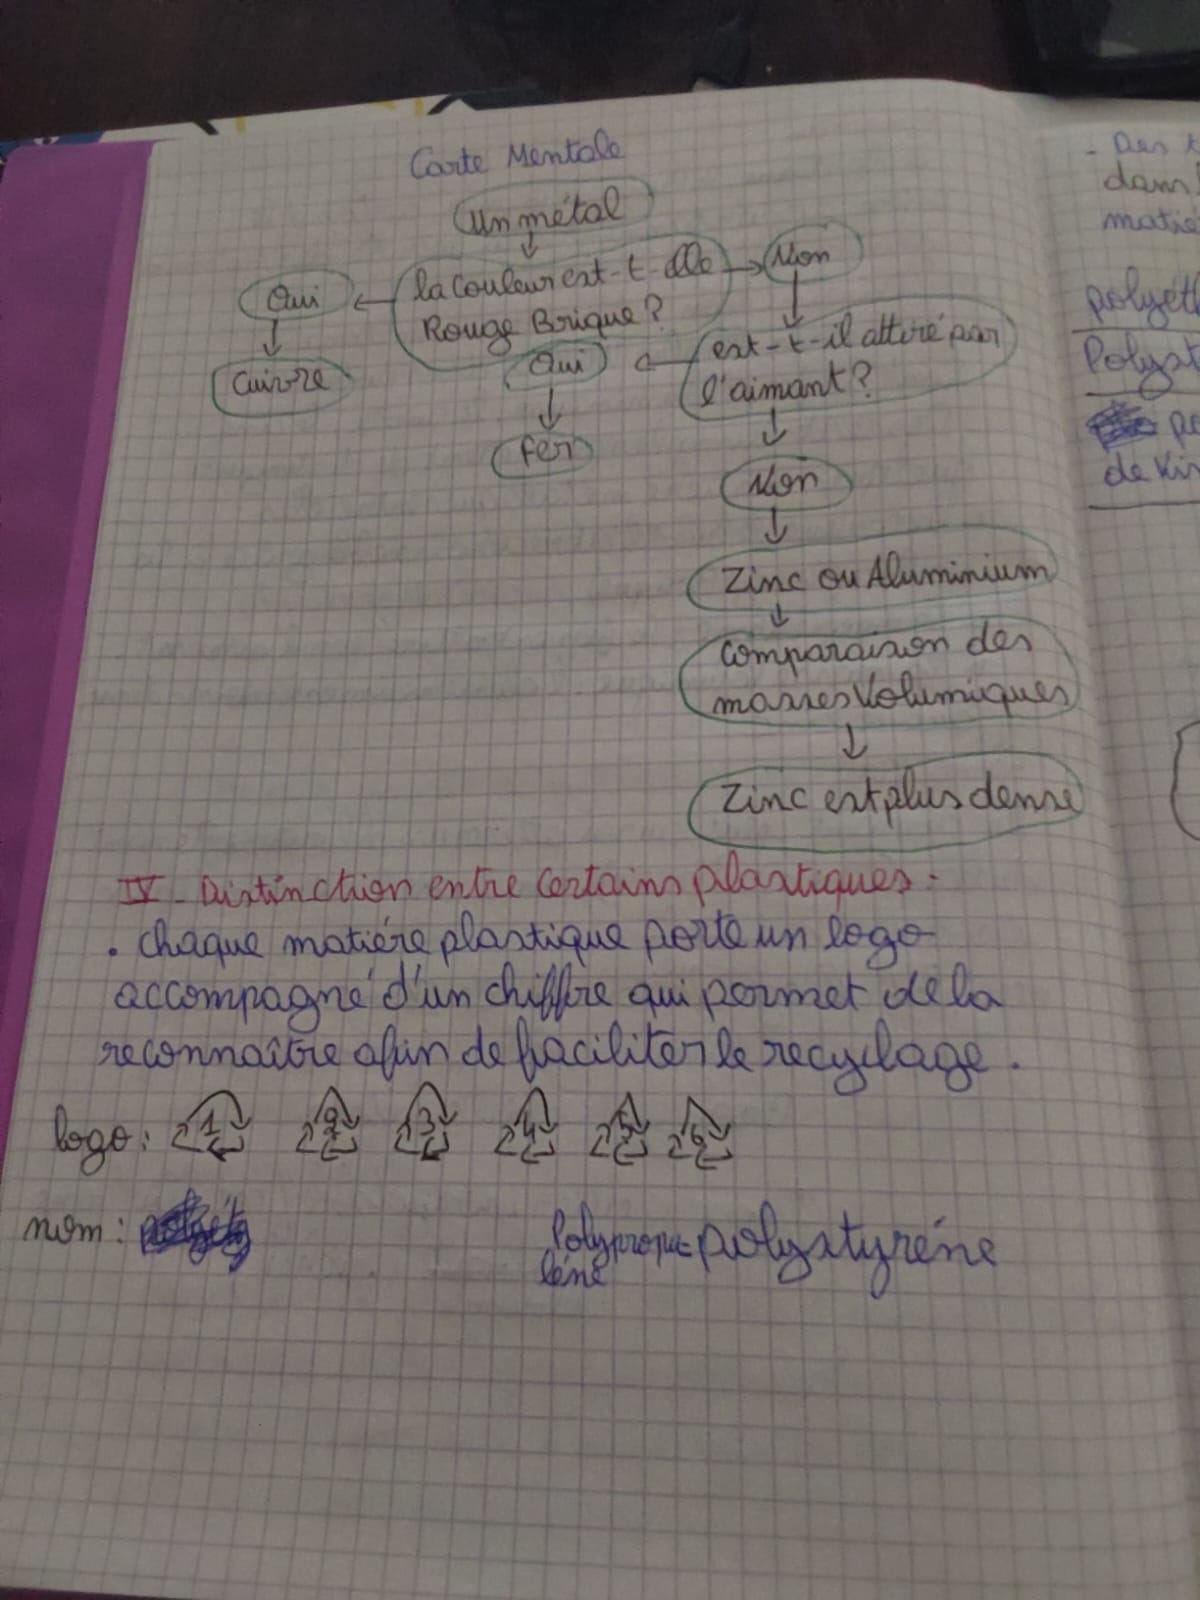 Carte Mentale
Un métal
la couleur est-t-elle
Rouge Brique?
Oui
Cuivre
Non
est-t-il attiré par
l'aimant?
Oui
fer
Non
Zinc ou Aluminium
Comparaison des
masses Volumiques
Zinc est plus dense
IV - Distinction entre Certains plastiques.
. chaque matiére plastique porte un logo
accompagné d'un chiffre qui permet de la
reconnaître afin de faciliter le recyclage.
logo: 1 2 3 4 5 6
nom: Polyprope- polystyréne
léne
- Des
dans
matié
polyét
Polyst
po
de Vin